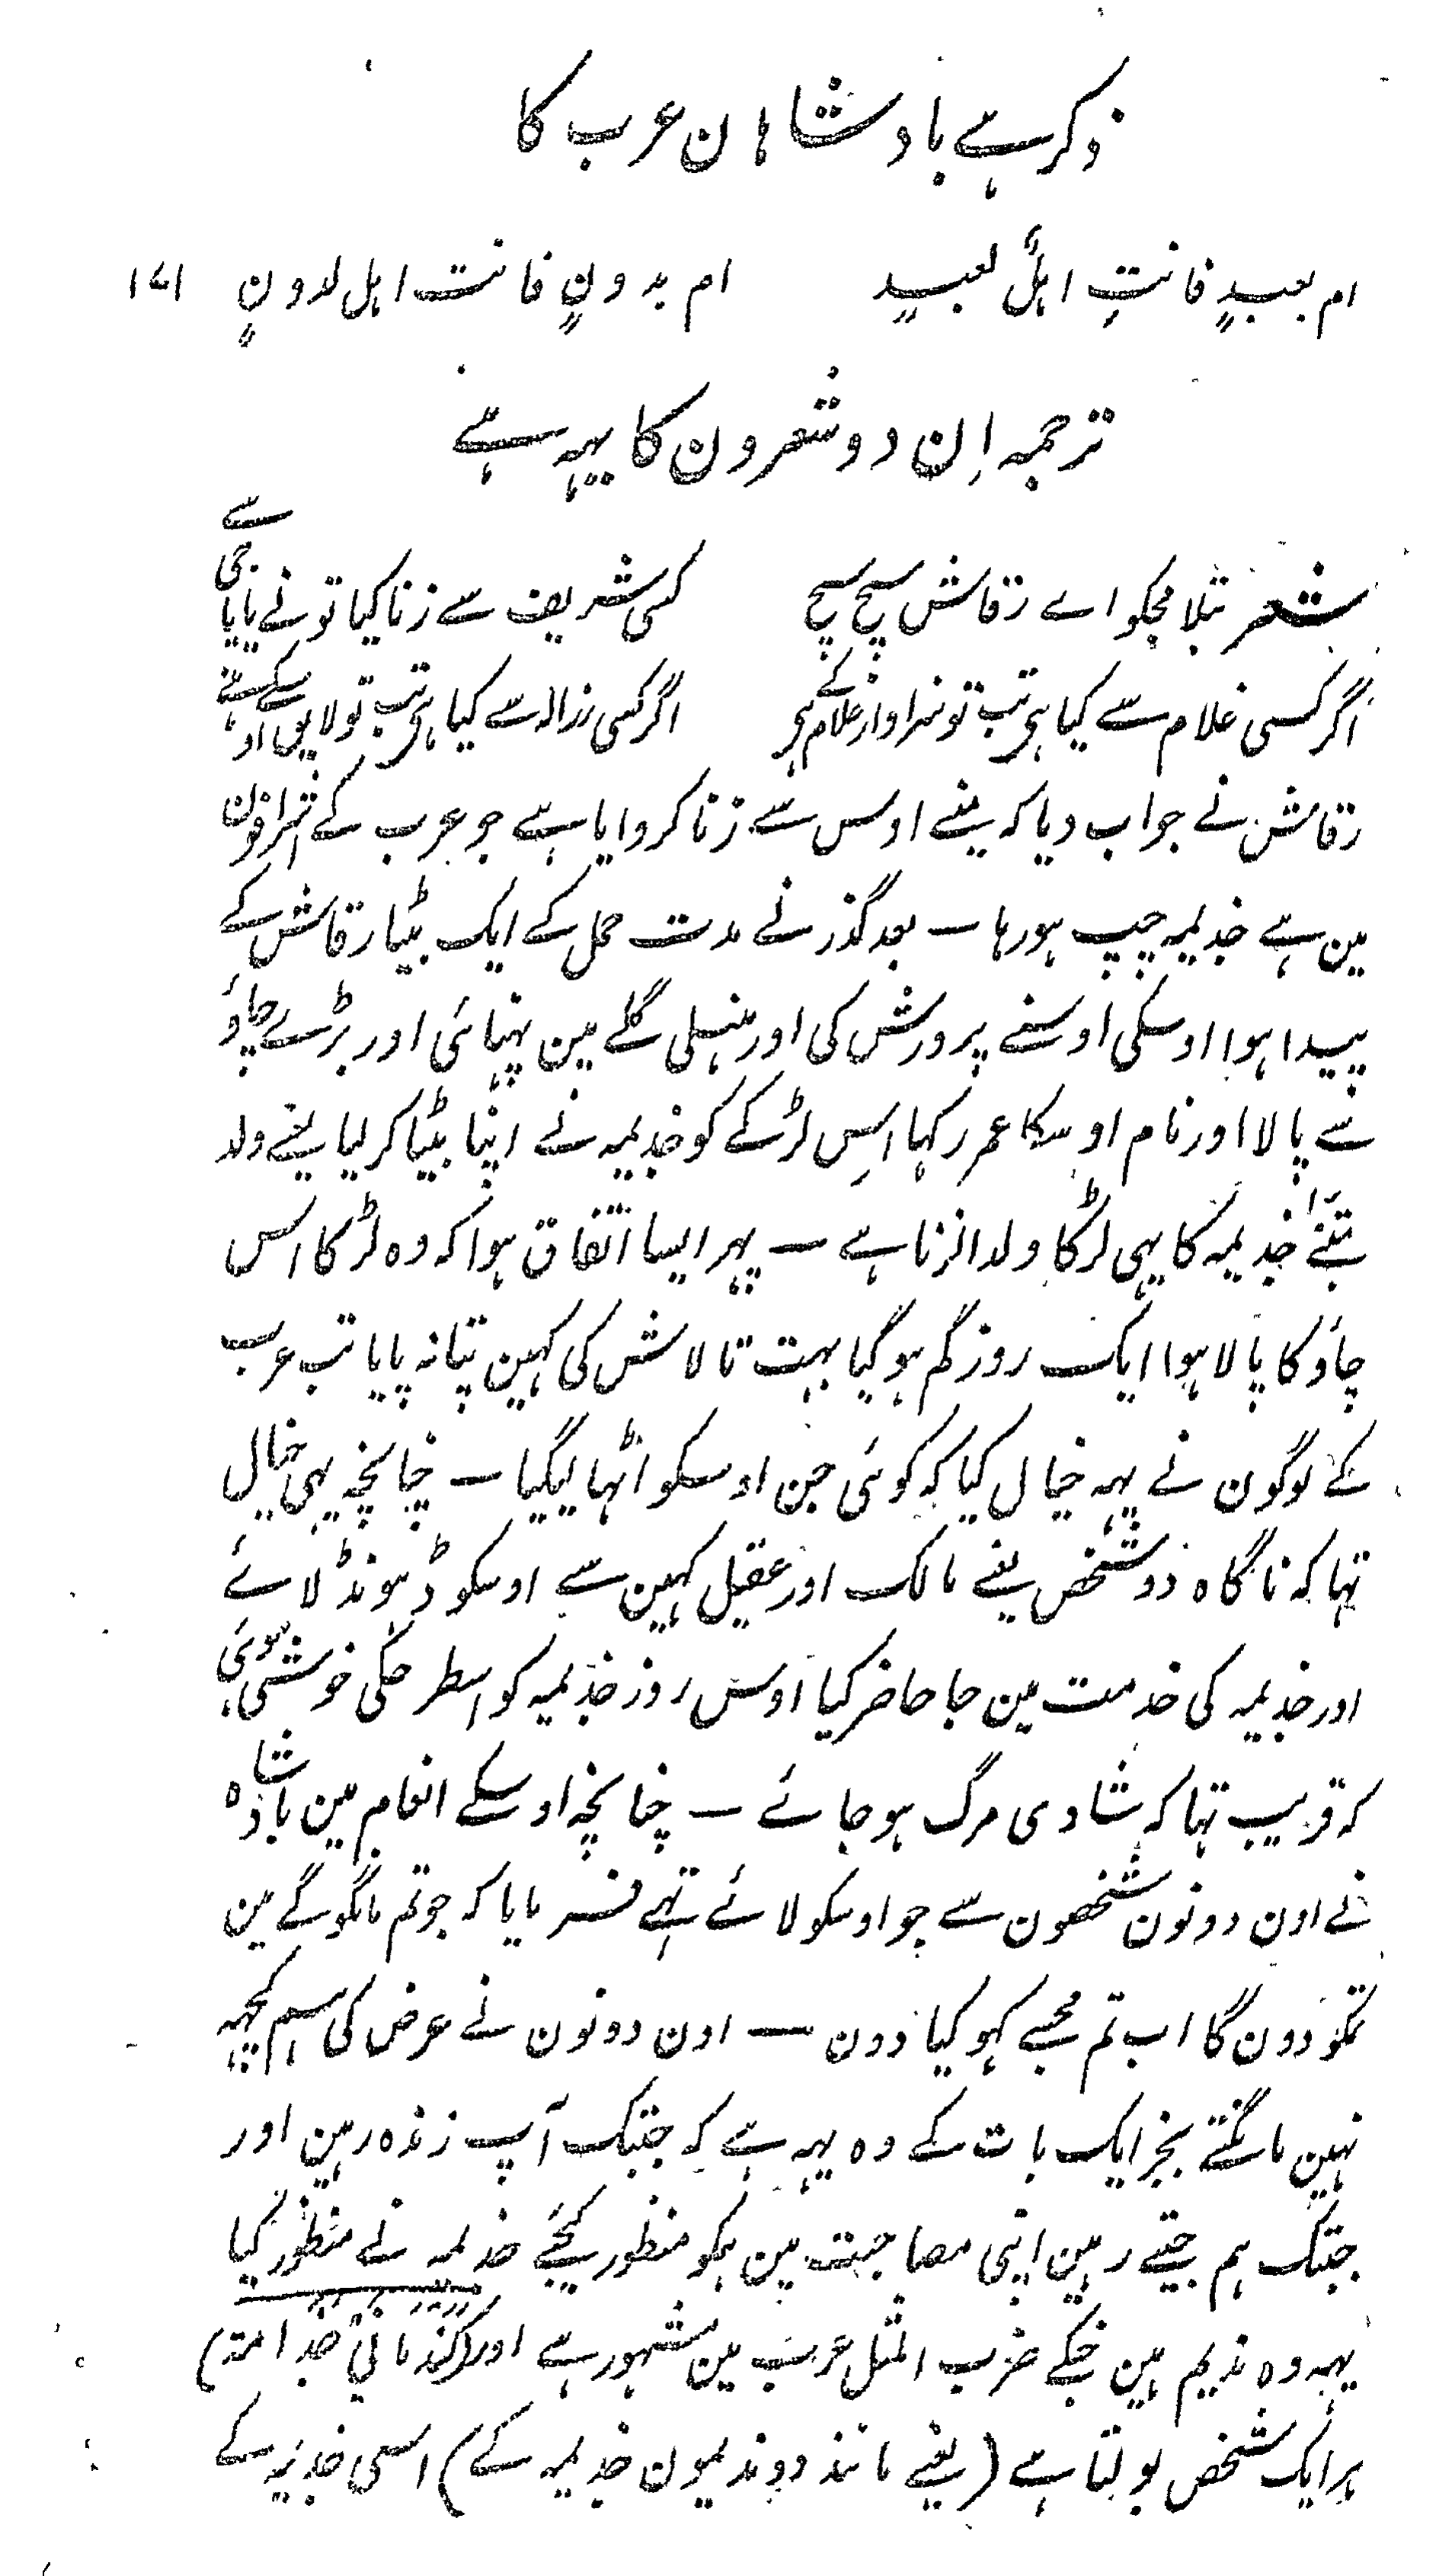 ذکر ہے بادشاہان عرب کا
ام بعبیدٍ فانتِ اہلٌ لعبیدٍ ام بدونٍ فانت اہل لدونٍ ۱۷۱
ترجمہ اِن دو شعرون کا یہہ ہے
شعر بتلا مجکو اے رقاش سچ سچ کسی شریف سے زنا کیا تو نے یا پاجی سے
اگر کسی غلام سے کیا ہی تب تو سزاوار غلام کے ہی اگر کسی رزالہ سے کیا ہی تب تو لایق اوسکے ہے
رقاش نے جواب دیا کہ مینے اوس سے زنا کروایا ہے جو عرب کے اشرافون
مین ہے جذیمہ چپ ہورہا — بعد گذرنے مدت حمل کے ایک بیٹا رقاش کے
پیدا ہوا اوسکی اوسنے پرورش کی اور ہنسلی گلے مین پہنائی اور بڑے چاؤ
سے پالا اور نام اوسکا عمر رکہا اس لڑکے کو جذیمہ نے اپنا بیٹا کر لیا یعنے ولد
تبنّے جذیمہ کا یہی لڑکا ولد الزنا ہے — پہر ایسا اتفاق ہوا کہ وہ لڑکا اس
چاؤ کا پالا ہوا ایک روز گم ہو گیا بہت تالاش کی کہین پتا نہ پایا تب عرب
کے لوگون نے یہہ خیال کیا کہ کوئی جن اوسکو اٹہا لیگیا — چنانچہ یہی خیال
تہا کہ ناگاہ دو شخص یعنے مالک اور عقیل کہین سے اوسکو ڈہونڈ لائے
اور جذیمہ کی خدمت مین جا حاضر کیا اوس روز جذیمہ کو اسطرحکی خوشی ہوئی
کہ قریب تہا کہ شادی مرگ ہو جائے — چنانچہ اوسکے انعام مین بادشاہ
نے اون دونون شخصون سے جو اوسکو لائے تہے فرمایا کہ جو تم مانگو گے مین
تمکو دون گا اب تم مجسے کہو کیا دون — اون دونون نے عرض کی ہم کچہہ
نہین مانگتے بجز ایک بات کے وہ یہہ ہے کہ جبتک آپ زندہ رہین اور
جبتک ہم جیتے رہین اپنی مصاحبت مین ہمکو منظور کیجئے جذیمہ نے منظور کیا
یہہ وہ ندیم ہین جنکے ضرب المثل عرب مین مشہور ہے اور (کندمانی جذامة)
ہر ایک شخص بولتا ہے (یعنے مانند دو ندیمون جذیمہ کے) اسی جذیمہ کے